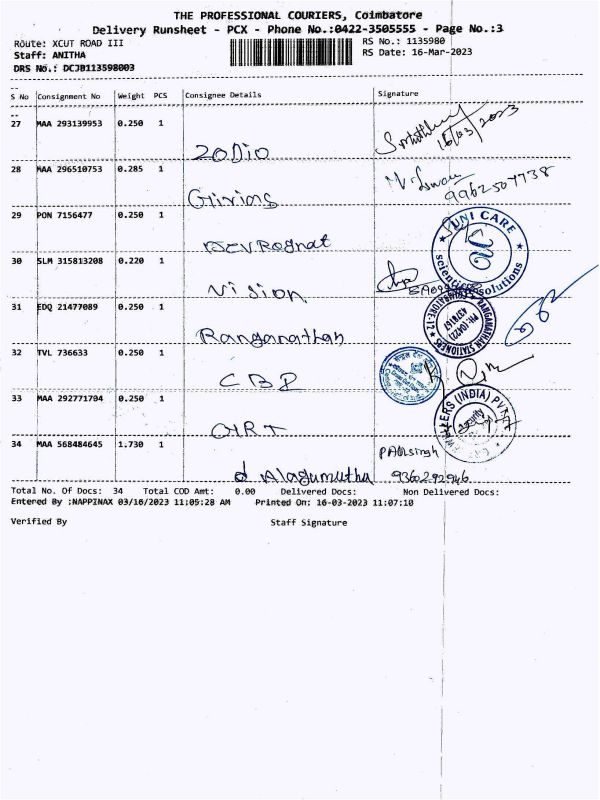 THE PROFESSIONAL COURIERS, Coimbatore
Delivery Runsheet - PCX - Phone No.:0422-3505555 - Page No.:3
Route: XCUT ROAD III RS No.: 1135980
Staff: ANITHA RS Date: 16-Mar-2023
DRS No.: DCJB113598003
S No Consignment No Weight PCS Consignee Details Signature
27 MAA 293139953 0.250 1
16/03/2023
ZODIO
28 MAA 296510753 0.285 1
9962507738
29 PON 7156477 0.250 1
UNI CARE
scientific solutions
30 SLM 315813208 0.220 1
Vision
31 EDQ 21477089 0.250 1
RANGANATHAN STATIONERS
COIMBATORE-12
Ranganathan
32 TVL 736633 0.250 1
33 MAA 292771704 0.250 1
(INDIA) PVT
Security
GRT
34 MAA 568484645 1.730 1
d Alagumuthu 9360292946
Total No. Of Docs: 34 Total COD Amt: 0.00 Delivered Docs: Non Delivered Docs:
Entered By :NAPPINAX 03/16/2023 11:05:28 AM Printed On: 16-03-2023 11:07:10
Verified By Staff Signature